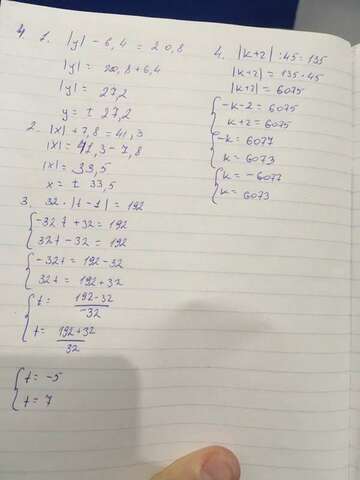 4 1. |y| - 6,4 = 20,8
|y| = 20,8+6,4
|y| = 27,2
y = ± 27,2
2. |x| + 7,8 = 41,3
|x| = 41,3 - 7,8
|x| = 33,5
x = ± 33,5
3. 32 · |t - 1| = 192
-32t + 32 = 192
32t - 32 = 192
-32t = 192-32
32t = 192+32
t = 192-32
-32
t = 192+32
32
t = -5
t = 7
4. |k+2| : 45 = 135
|k+2| = 135·45
|k+2| = 6075
-k-2 = 6075
k+2 = 6075
-k = 6077
k = 6073
k = -6077
k = 6073